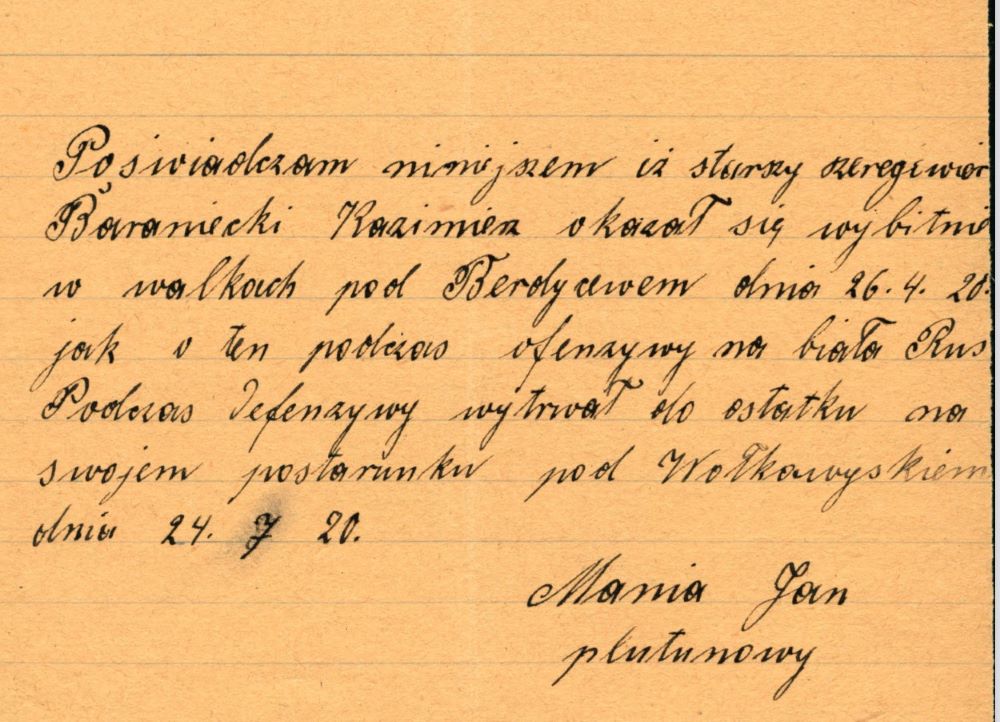 Poświadczam niniejszem iż starszy szeregowier
Baraniecki Kazimierz okazał się wybitnie
w walkach pod Berdyczewem dnia 26.4.20.
jak o ten podczas ofenzywy na biała Rus
Podczas defenzywy wytrwał do ostatku na
swojem postarunku pod Wołkawyskiem
dnia 24. 7 20.
Mania Jan
plutunowy